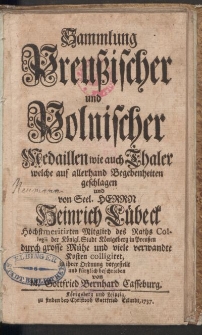 Sammlung
Preußischer
und
Polnischer
Medaillen wie auch Thaler
welche auf allerhand Begebenheiten
geschlagen
und
von Seel. HERRN
Heinrich Lübeck
Höchstmeritirten Mitglied des Raths Col-
legii der Königl. Stadt Königsberg in Preußen
durch grosse Mühe und viele verwandte
Kosten colligiret,
in ihrer Ordnung vorgestellt
und kürtzlich beschrieben
von
Gottfried Bernhard Casseburg.
Königsberg und Leipzig,
zu finden bey Christoph Gottfried Eckardt, 1737.